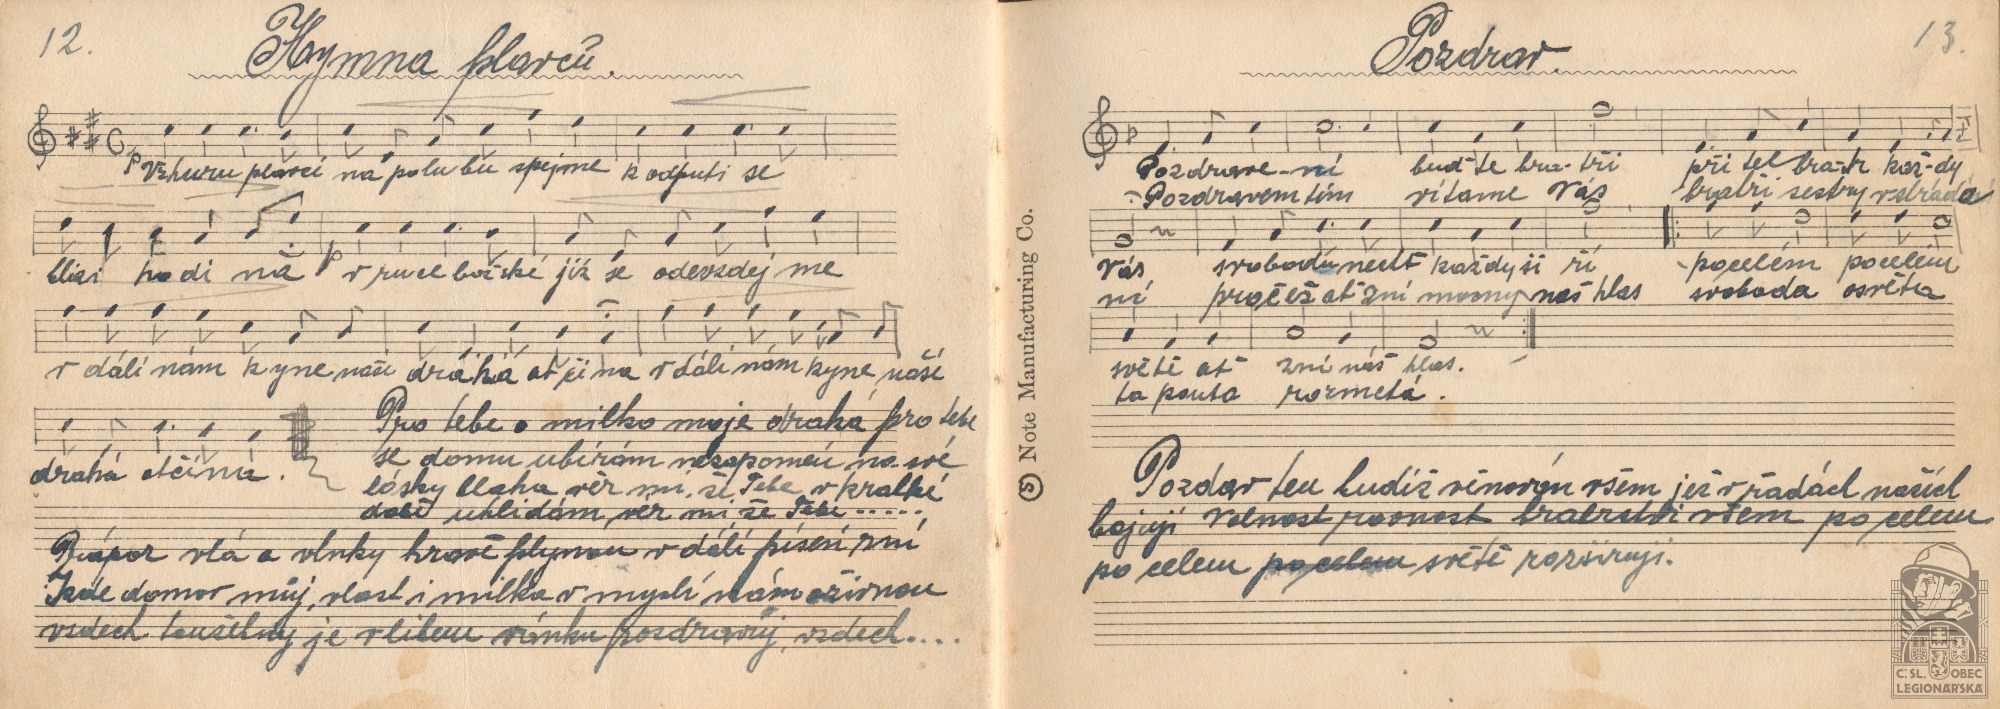 12.
Hymna plavců.
Vzhuru plavci na palubu spějme k odputi se
blízi hodi na v ruce božské již se odevzdej me
v dáli nám kyne naši drahá otčina v dáli nám kyne naší
drahá otčina.
Pro tebe o milko moje drahá pro tebe
se domu ubírám nezapomeň na své
lásky blaha věr mi, že Tebe v krátké
době uhlidám věr mi že Tebe .....
Prápor vlá a vlnky hravě plynou v dáli píseň zní
Jede domov můj, vlast i milka v mysli nám ožívnou
vzdech toužebný je v libém vánku pozdravuj, vzdech....
© Note Manufacturing Co.
13.
Pozdrav.
Pozdrave-ní buď-te bra-tři pří tel bra-tr kaž-dy
Pozdravem tím vítame Vás bratři sestry v
Vás svobodu nechť každy si ří po celém po celém
ní pročež ať zní mocny náš hlas svoboda osvěta
světě ať zní náš hlas.
ta pouta rozmetá.
Pozdrav ten budiž věnován všem již v řadách našich
bojují Volnost rovnost braterství všem po celem
po celem po celem světě rozširuji.
Č.SL. OBEC
LEGIONÁŘSKÁ